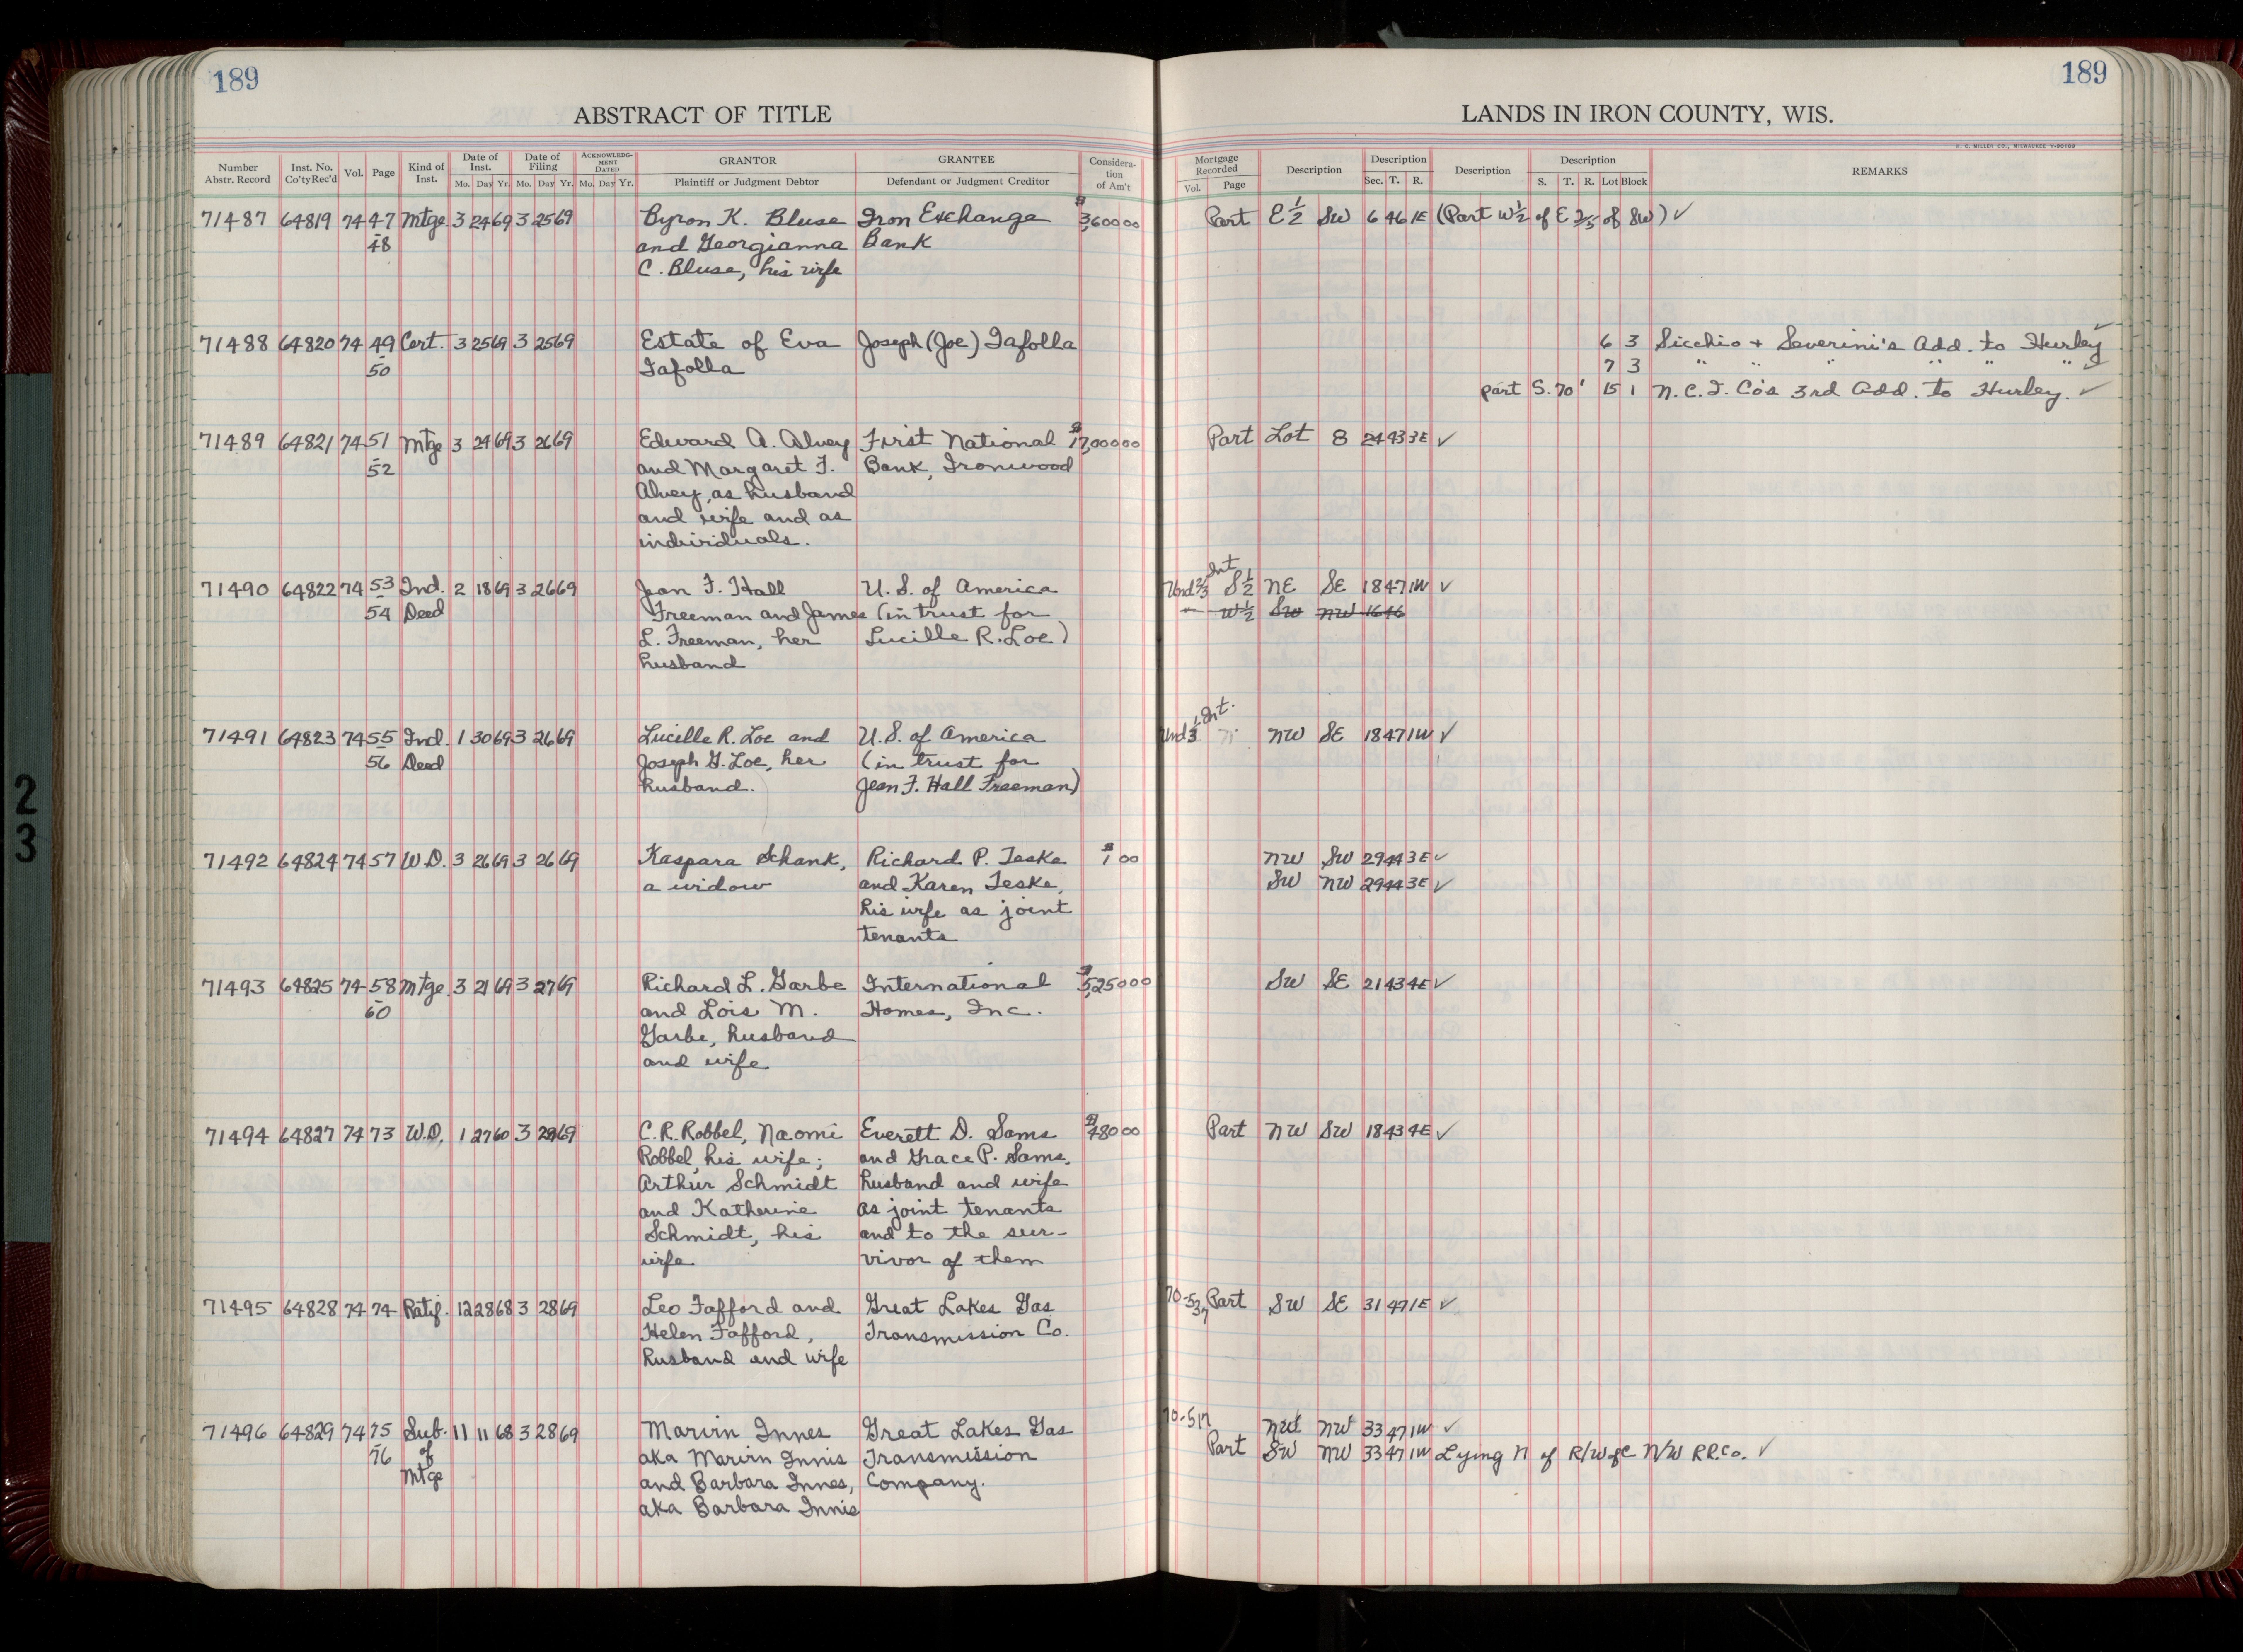 189
189
ABSTRACT OF TITLE
LANDS IN IRON COUNTY, WIS.
H. C. MILLER CO., MILWAUKEE
Number Abstr. Record | Inst. No. Co'ty Rec'd | Vol. | Page | Kind of Inst. | Date of Inst. Mo. Day Yr. | Date of Filing Mo. Day Yr. | ACKNOWLEDGMENT DATED Mo. Day Yr. | GRANTOR Plaintiff or Judgment Debtor | GRANTEE Defendant or Judgment Creditor | Consideration of Am't | Mortgage Recorded Vol. Page | Description | Description Sec. T. R. | Description | Description S. T. R. Lot Block | REMARKS
71487 64819 74 47 Mtge. 3 24 69 3 25 69 Byron K. Bluse Iron Exchange $3,600 00 Part E ½ SW 6 46 1E (Part W ½ of E 2/5 of SW) ✓
- 48 and Georgianna Bank
C. Bluse, his wife
71488 64820 74 49 Cert. 3 25 69 3 25 69 Estate of Eva Joseph (Joe) Tafolla 6 3 Sicchio + Severini's Add. to Hurley ✓
- 50 Tafolla 7 3 " " " " " " ✓
part S. 70' 15 1 N.C.I. Co's 3rd Add. to Hurley. ✓
71489 64821 74 51 Mtge 3 24 69 3 26 69 Edward A. Alvey First National $17,000 00 Part Lot 8 24 43 3E ✓
- 52 and Margaret F. Bank, Ironwood
Alvey, as husband
and wife and as
individuals.
71490 64822 74 53 Ind. 2 18 69 3 26 69 Jean F. Hall U.S. of America Und 2/3 Int S ½ NE SE 18 47 1W ✓
- 54 Deed Freeman and James (in trust for W ½ SW NW 16 46
L. Freeman, her Lucille R. Loe)
husband
71491 64823 74 55 Ind. 1 30 69 3 26 69 Lucille R. Loe and U.S. of America Und 1/3 Int. NW SE 18 47 1W ✓
- 56 Deed Joseph G. Loe, her (in trust for
husband. Jean F. Hall Freeman)
71492 64824 74 57 W.D. 3 26 69 3 26 69 Kaspara Schank, Richard P. Teske $1 00 NW SW 29 44 3E ✓
a widow and Karen Teske, SW NW 29 44 3E ✓
his wife as joint
tenants
71493 64825 74 58 Mtge. 3 21 69 3 27 69 Richard L. Garbe International $5,250 00 SW SE 21 43 4E ✓
- 60 and Lois M. Homes, Inc.
Garbe, husband
and wife
71494 64827 74 73 W.D. 1 27 60 3 28 69 C.R. Robbel, Naomi Everett D. Sams $480 00 Part NW SW 18 43 4E ✓
Robbel, his wife; and Grace P. Sams,
Arthur Schmidt husband and wife
and Katherine as joint tenants
Schmidt, his and to the sur-
wife vivor of them
71495 64828 74 74 Ratif. 12 28 68 3 28 69 Leo Fafford and Great Lakes Gas 70-537 Part SW SE 31 47 1E ✓
Helen Fafford, Transmission Co.
husband and wife
71496 64829 74 75 Sub. 11 11 68 3 28 69 Marvin Innes Great Lakes Gas 70-517 NW NW 33 47 1W ✓
- 76 of aka Marvin Innis Transmission Part SW NW 33 47 1W Lying N of R/W of C N/W RR.Co. ✓
Mtge and Barbara Innes, Company.
aka Barbara Innis
23